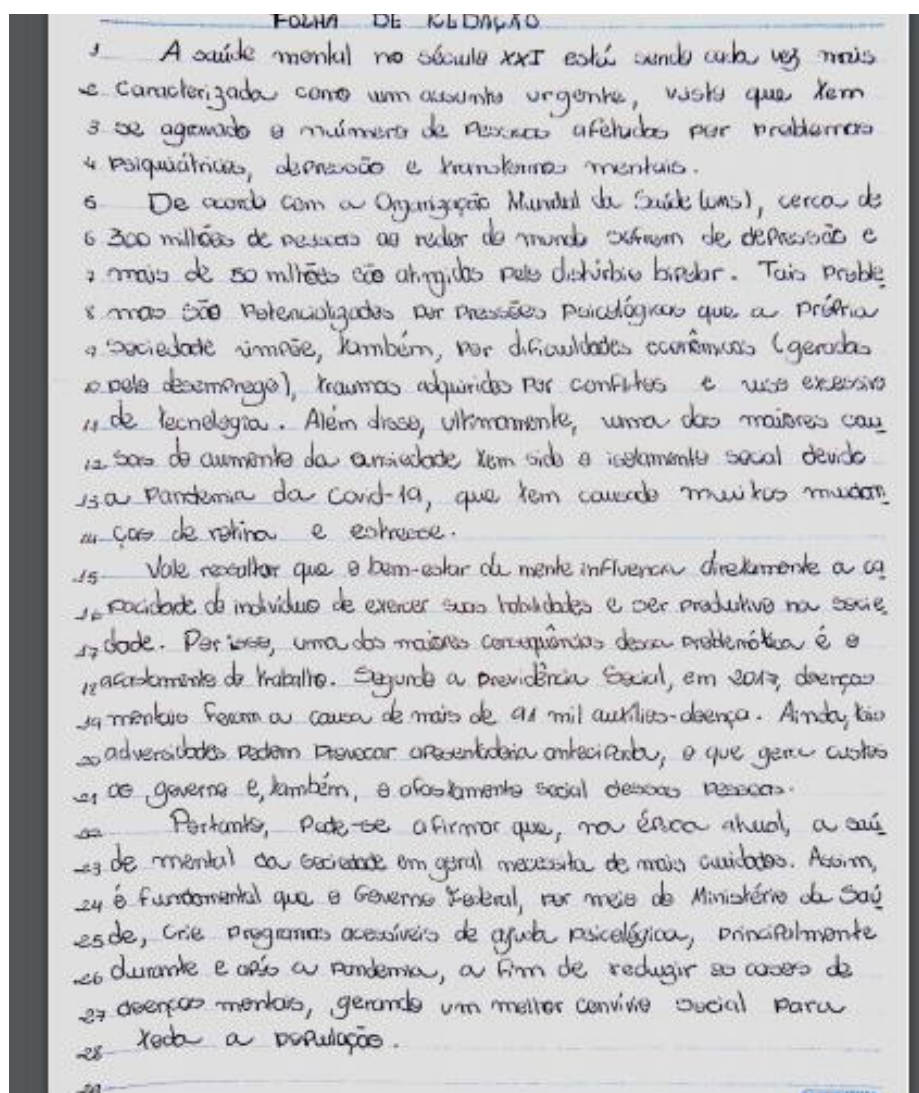 FOLHA DE REDAÇÃO
1 A saúde mental no século XXI está sendo cada vez mais
2 caracterizada como um assunto urgente, visto que tem
3 se agravado o número de pessoas afetadas por problemas
4 psiquiátricos, depressão e transtornos mentais.
5 De acordo com a Organização Mundial da Saúde (oms), cerca de
6 300 milhões de pessoas ao redor do mundo sofrem de depressão e
7 mais de 50 milhões são atingidas pelo distúrbio bipolar. Tais proble
8 mas são potencializados por pressões psicológicas que a própria
9 sociedade impõe, também, por dificuldades econômicas (geradas
10 pelo desemprego), traumas adquiridos por conflitos e uso excessivo
11 de tecnologia. Além disso, ultimamente, uma das maiores cau
12 sas do aumento da ansiedade tem sido o isolamento social devido
13 a pandemia da Covid-19, que tem causado muitas mudan
14 ças de rotina e estresse.
15 Vale ressaltar que o bem-estar da mente influencia diretamente a ca
16 pacidade do indivíduo de exercer suas habilidades e ser produtivo na socie
17 dade. Por isso, uma das maiores consequências dessa problemática é o
18 afastamento do trabalho. Segundo a previdência Social, em 2017, doenças
19 mentais foram a causa de mais de 91 mil auxílios-doença. Ainda, tais
20 adversidades podem provocar aposentadoria antecipada, o que gera custos
21 ao governo e, também, o afastamento social dessas pessoas.
22 Portanto, pode-se afirmar que, na época atual, a saú
23 de mental da sociedade em geral necessita de mais cuidados. Assim,
24 é fundamental que o Governo Federal, por meio do Ministério da Saú
25 de, crie programas acessíveis de ajuda psicológica, principalmente
26 durante e após a pandemia, a fim de reduzir os casos de
27 doenças mentais, gerando um melhor convívio social para
28 toda a população.
29